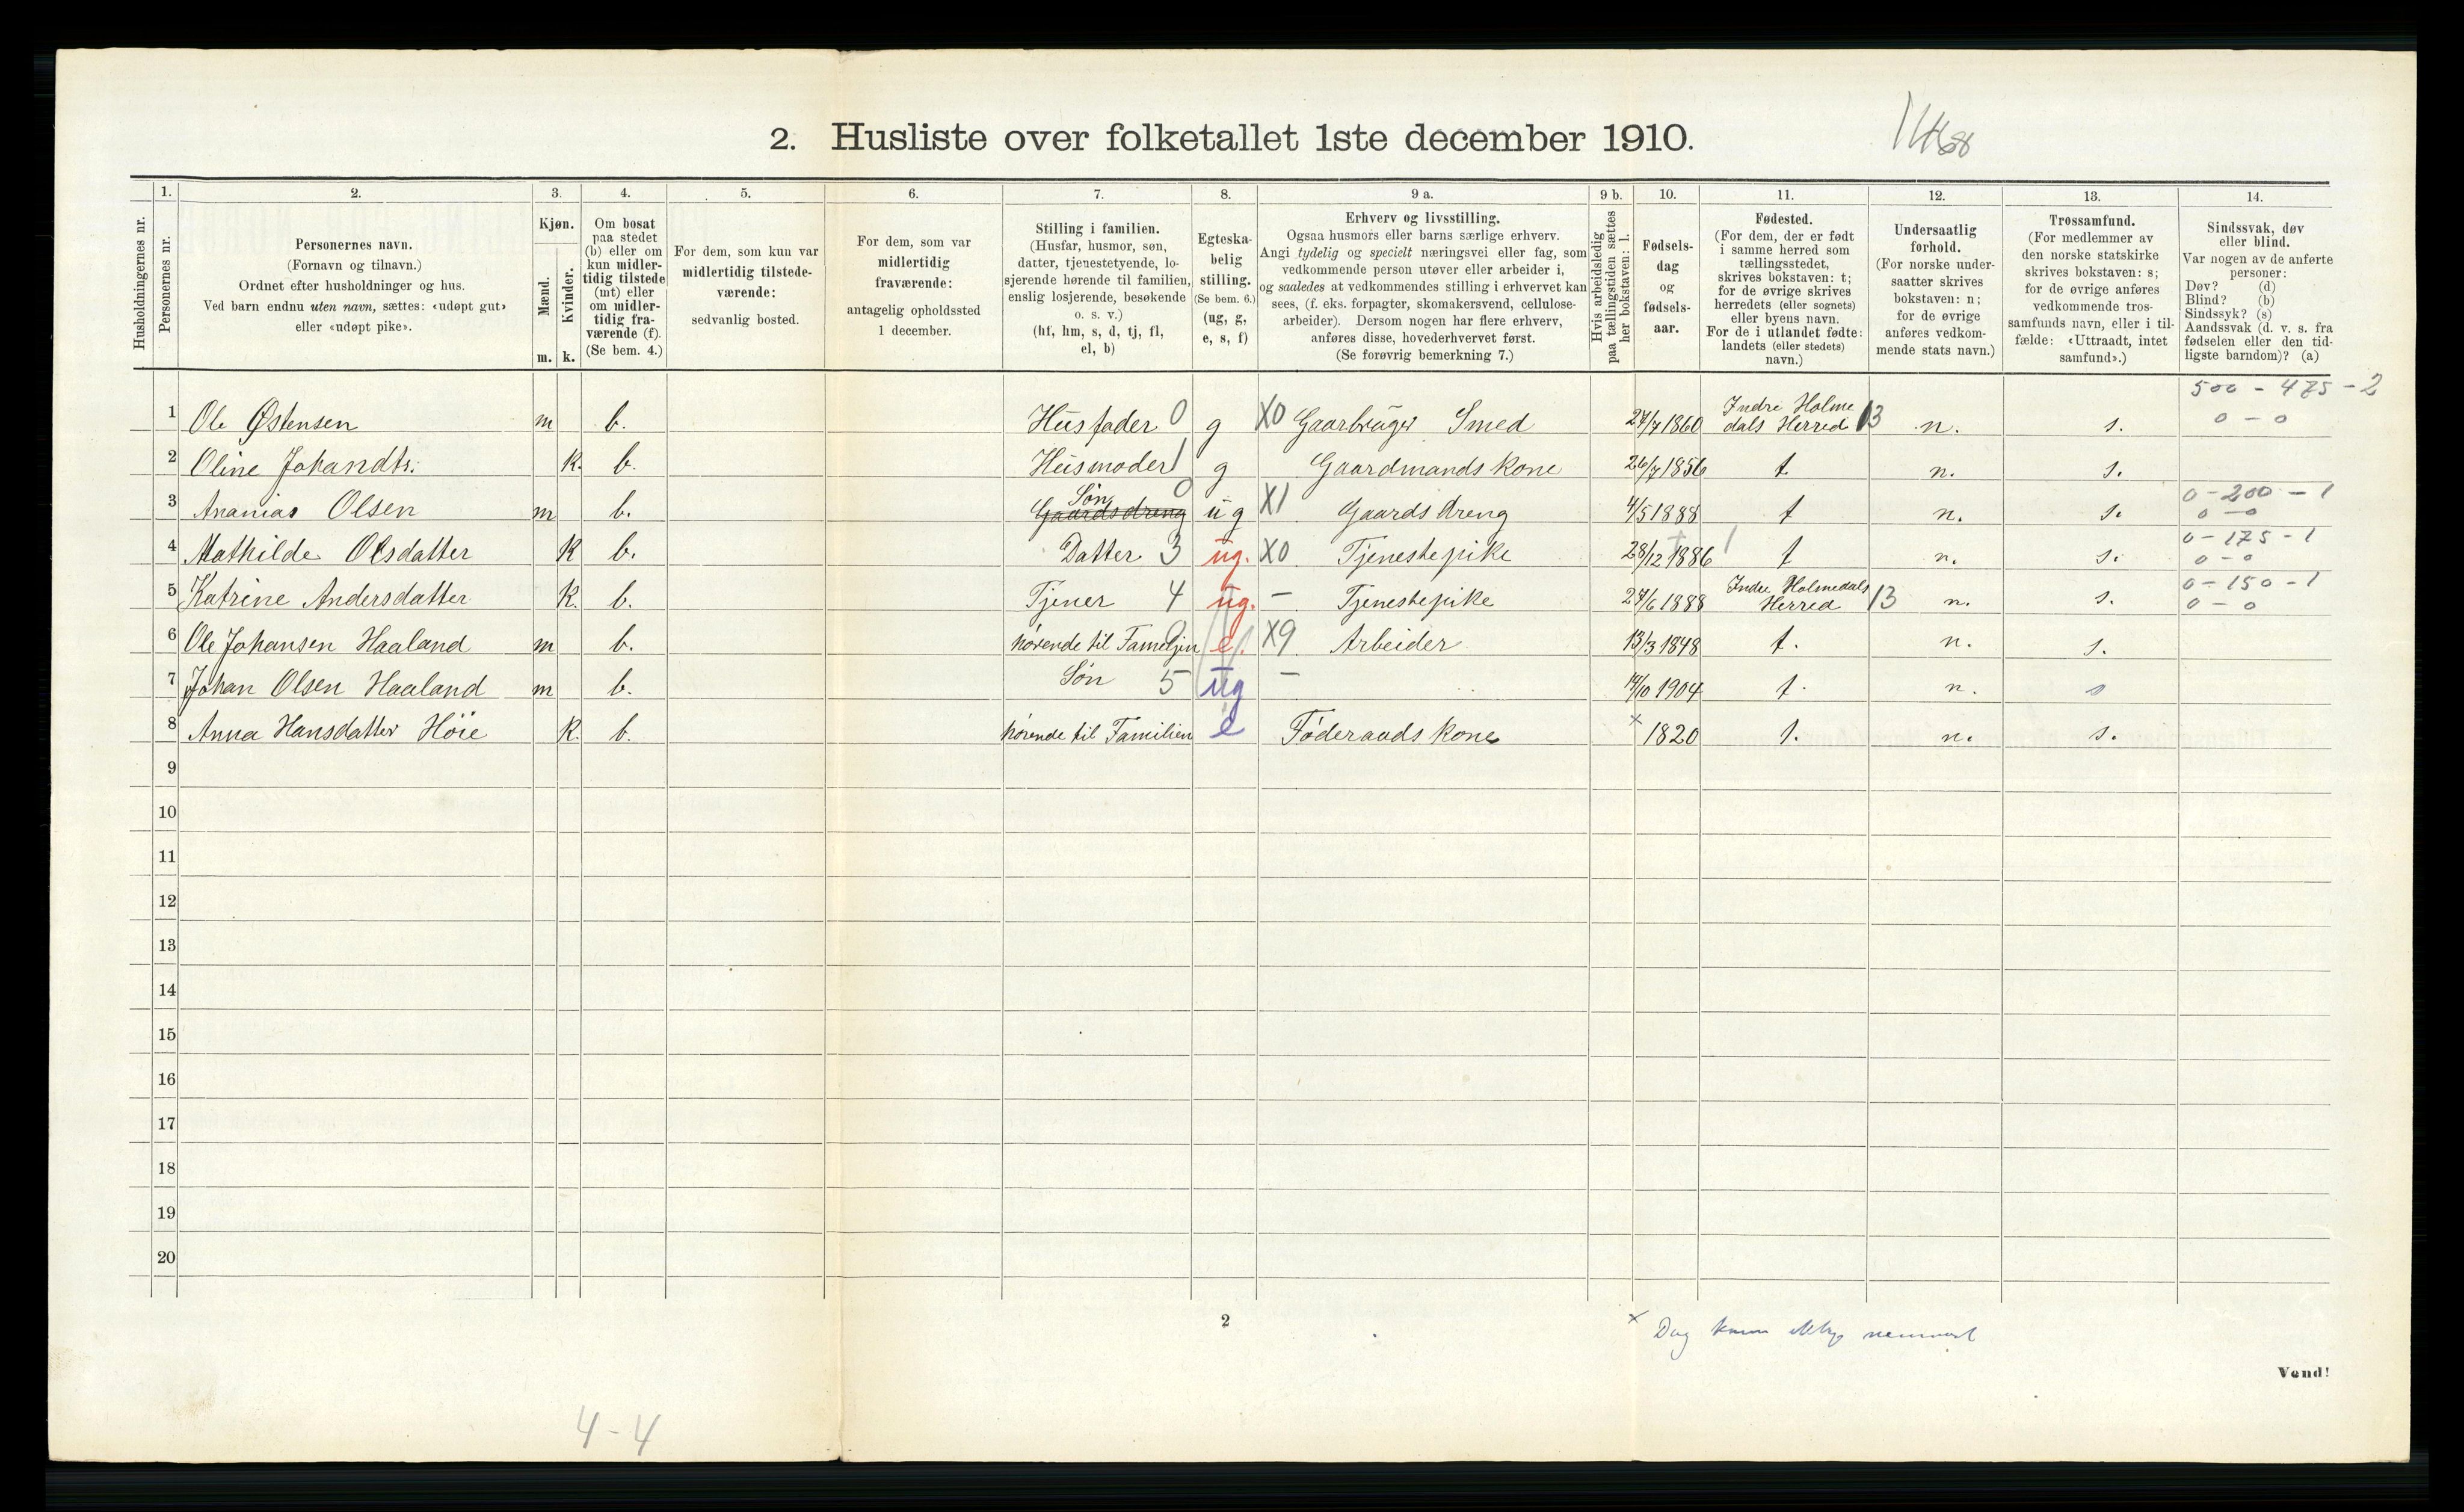 2. Husliste over folketallet 1ste december 1910.
Husholdningernes nr.
1. Personernes nr.
2. Personernes navn.
(Fornavn og tilnavn.)
Ordnet efter husholdninger og hus.
Ved barn endnu uten navn, sættes: «udøpt gut»
eller «udøpt pike».
3. Kjøn.
Mænd. Kvinder.
m. k.
4. Om bosat
paa stedet
(b) eller om
kun midler-
tidig tilstede
(mt) eller
om midler-
tidig fra-
værende (f).
(Se bem. 4.)
5. For dem, som kun var
midlertidig tilstede-
værende:
sedvanlig bosted.
6. For dem, som var
midlertidig
fraværende:
antagelig opholdssted
1 december.
7. Stilling i familien.
(Husfar, husmor, søn,
datter, tjenestetyende, lo-
sjerende hørende til familien,
enslig losjerende, besøkende
o. s. v.)
(hf, hm, s, d, tj, fl,
el, b)
8. Egteska-
belig
stilling.
(Se bem. 6.)
(ug, g,
e, s, f)
9 a. Erhverv og livsstilling.
Ogsaa husmors eller barns særlige erhverv.
Angi tydelig og specielt næringsvei eller fag, som
vedkommende person utøver eller arbeider i,
og saaledes at vedkommendes stilling i erhvervet kan
sees, (f. eks. forpagter, skomakersvend, cellulose-
arbeider). Dersom nogen har flere erhverv,
anføres disse, hovederhvervet først.
(Se forøvrig bemerkning 7.)
9 b. Hvis arbeidsledig
paa tællingstiden sættes
her bokstaven: l.
10. Fødsels-
dag
og
fødsels-
aar.
11. Fødested.
(For dem, der er født
i samme herred som
tællingsstedet,
skrives bokstaven: t;
for de øvrige skrives
herredets (eller sognets)
eller byens navn.
For de i utlandet fødte:
landets (eller stedets)
navn.)
12. Undersaatlig
forhold.
(For norske under-
saatter skrives
bokstaven: n;
for de øvrige
anføres vedkom-
mende stats navn.)
13. Trossamfund.
(For medlemmer av
den norske statskirke
skrives bokstaven: s;
for de øvrige anføres
vedkommende tros-
samfunds navn, eller i til-
fælde: «Uttraadt, intet
samfund».)
14. Sindssvak, døv
eller blind.
Var nogen av de anførte
personer:
Døv? (d)
Blind? (b)
Sindssyk? (s)
Aandssvak (d. v. s. fra
fødselen eller den tid-
ligste barndom)? (a)
500 - 475 - 2
1 Ole Østensen m b. Husfader 0 g X0 Gaarbruger Smed 27/7 1860 Indre Holme dals Herred 13 n. s. 0 - 0
2 Oline Johandtr. K. b. Husmoder 1 g Gaardmands kone 26/7 1856 t n. s.
3 Ananias Olsen m b. Gaardsdreng Søn 0 ug X1 Gaards dreng 4/5 1888 t n. s. 0 - 200 - 1 0 - 0
4 Mathilde Olsdatter K b. Datter 3 ug. X0 Tjenestepike 28/12 1886 t n. s. 0 - 175 - 1 0 - 0
5 Katrine Andersdatter K. b. Tjener 4 ug. - Tjenestepike 27/6 1888 Indre Holmedals Herred 13 n. s. 0 - 150 - 1 0 - 0
6 Ole Johansen Haaland m b. hørende til Familjen e. X9 Arbeider 13/3 1848 t. n. s.
7 Johan Olsen Haaland m b. Søn 5 ug - 14/10 1904 t. n. s
8 Anna Hansdatter Høie K. b. hørende til Familien e Føderaads kone × 1820 t. n. s.
9
10
11
12
13
14
15
16
17
18
19
20
2
× Dag
Vend!
4-4